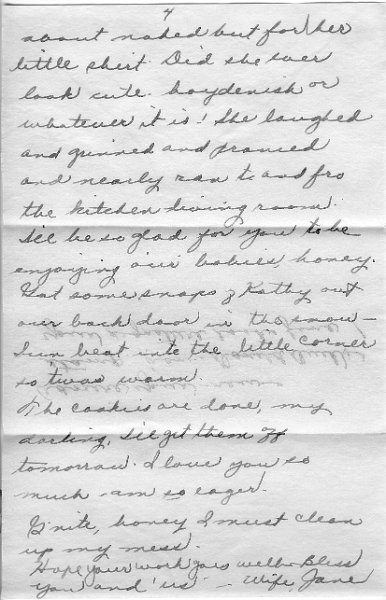 4
about naked but for her
little shirt. Did she ever
look cute - hoydenish or
whatever it is! She laughed
and grinned and pranced
and nearly ran to and fro
the kitchen-living room.
I'll be so glad for you to be
enjoying our babies, honey.
Got some snaps of Kathy out
our back door in the snow -
Sun beat into the little corner
so twas warm.
The cookies are done, my
darling, I'll get them off
tomorrow. I love you so
much - am so eager!
G'nite, honey I must clean
up my mess.
Hope your work goes well & Bless
you and 'us' - Wife, Jane